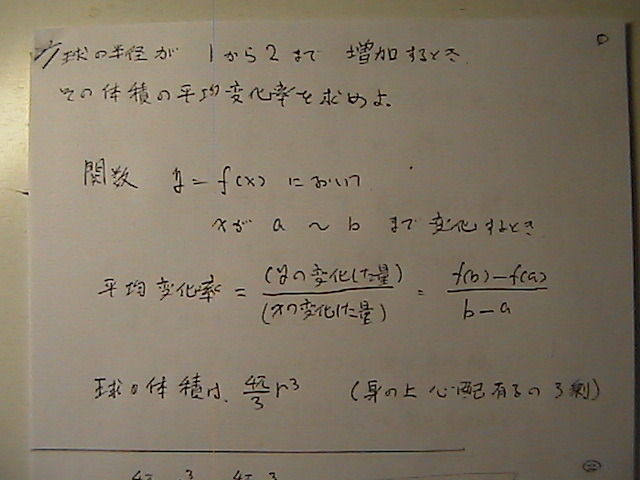 球の半径が 1から2まで 増加するとき.
その体積の平均変化率を求めよ。
関数 y = f(x) において
xが a ~ b まで変化するとき
平均変化率 = (yの変化した量)/(xの変化した量) = f(b)-f(a)/b-a
球の体積は、4π/3 r³ (身の上心配有るの3剰)
4π/3 4π/3